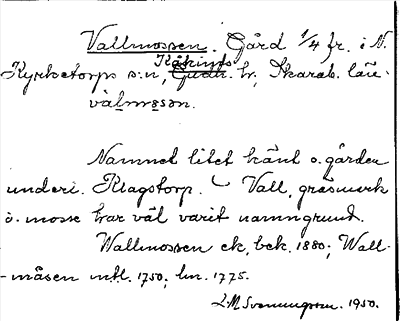 Vallmossen. Gård 1/4 fr. i N.
Kåkinds
Kyrketorps s:n, Gudh. hr, Skarab. län
vàlmosən.
Namnet litet känt o. gården
under i. Klagstorp. Vall, gräsmark
o. mosse har väl varit namngrund.
Wallmossen ek. bek. 1880; Wall-
-måsen mtl. 1750; hn. 1775.
L.M. Svenungsson. 1950.